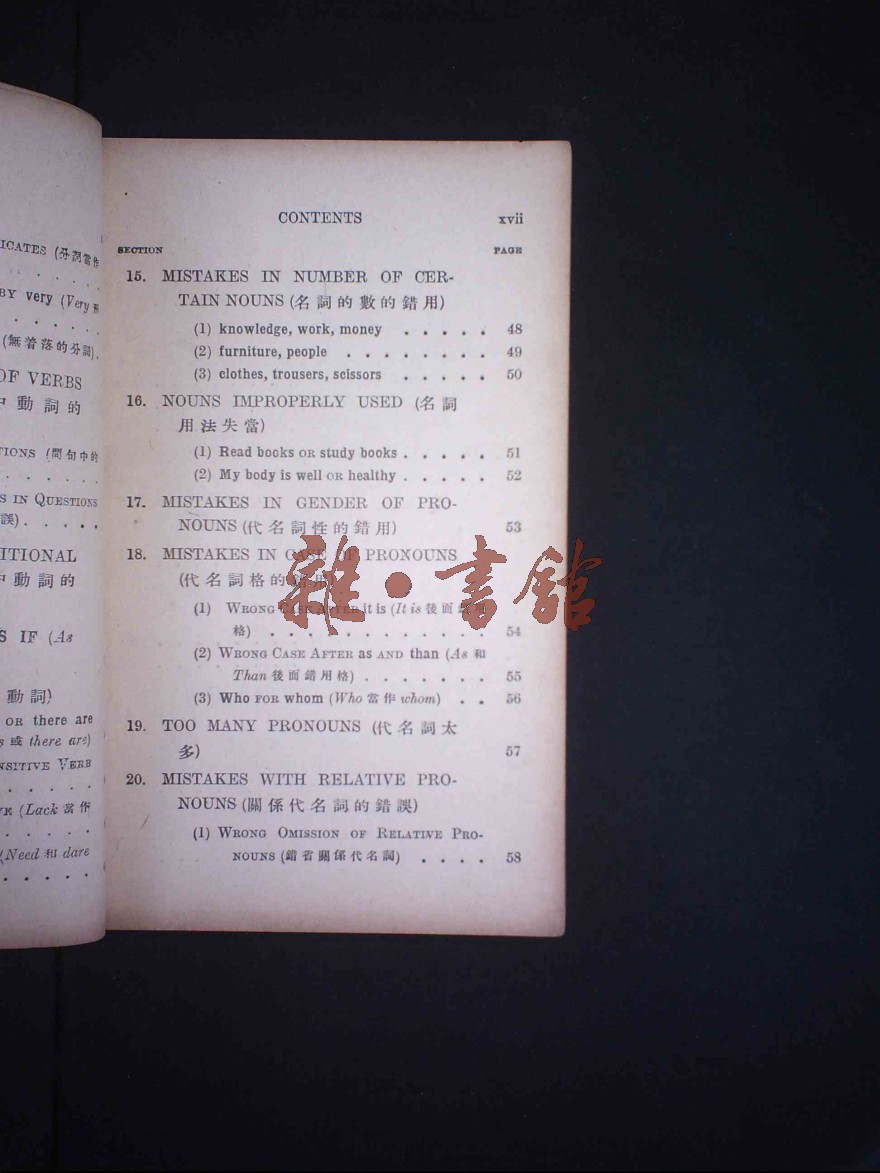 ICATES (分詞當作
BY very (Very
(無着落的分詞).
OF VERBS
中動詞的
TIONS (問句中的
S IN QUESTIONS
誤) . . . .
ITIONAL
中動詞的
S IF (As
動詞)
OR there are
s 或 there are)
NSITIVE VERB
VE (Lack 當作
(Need 和 dare
CONTENTS xvii
SECTION PAGE
15. MISTAKES IN NUMBER OF CER-
TAIN NOUNS (名詞的數的錯用)
(1) knowledge, work, money . . . . . 48
(2) furniture, people . . . . . . . . 49
(3) clothes, trousers, scissors . . . . . 50
16. NOUNS IMPROPERLY USED (名詞
用法失當)
(1) Read books OR study books . . . . . 51
(2) My body is well OR healthy . . . . . 52
17. MISTAKES IN GENDER OF PRO-
NOUNS (代名詞性的錯用) 53
18. MISTAKES IN CASE OF PRONOUNS
(代名詞格的錯用)
(1) WRONG CASE AFTER it is (It is 後面錯用
格) . . . . . . . . . . . . 54
(2) WRONG CASE AFTER as AND than (As 和
Than 後面錯用格) . . . . . . . 55
(3) Who FOR whom (Who 當作 whom) . . 56
19. TOO MANY PRONOUNS (代名詞太
多) 57
20. MISTAKES WITH RELATIVE PRO-
NOUNS (關係代名詞的錯誤)
(1) WRONG OMISSION OF RELATIVE PRO-
NOUNS (錯省關係代名詞) . . . . 58
雜·書館